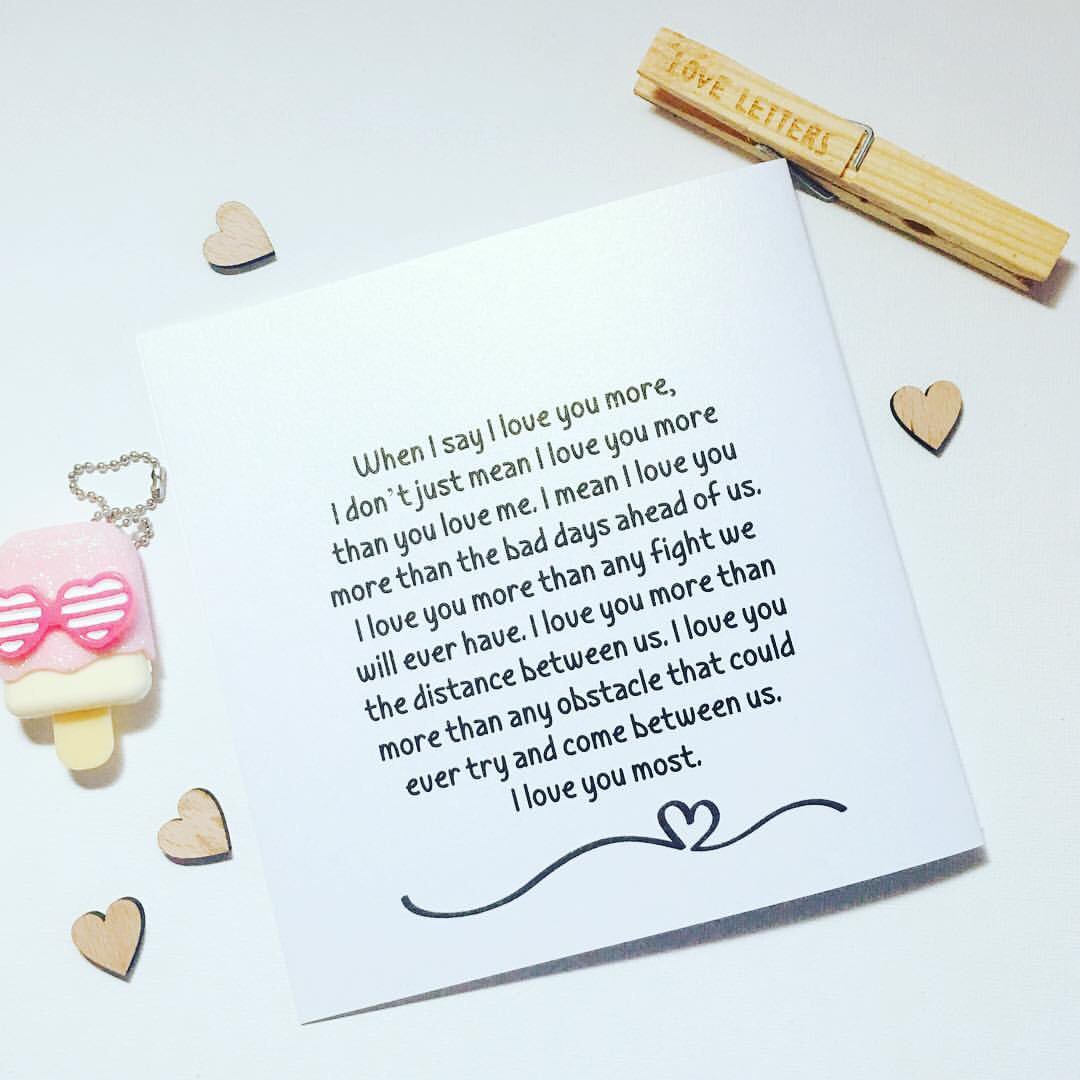 LOVE LETTERS
When I say I love you more,
I don't just mean I love you more
than you love me. I mean I love you
more than the bad days ahead of us.
I love you more than any fight we
will ever have. I love you more than
the distance between us. I love you
more than any obstacle that could
ever try and come between us.
I love you most.